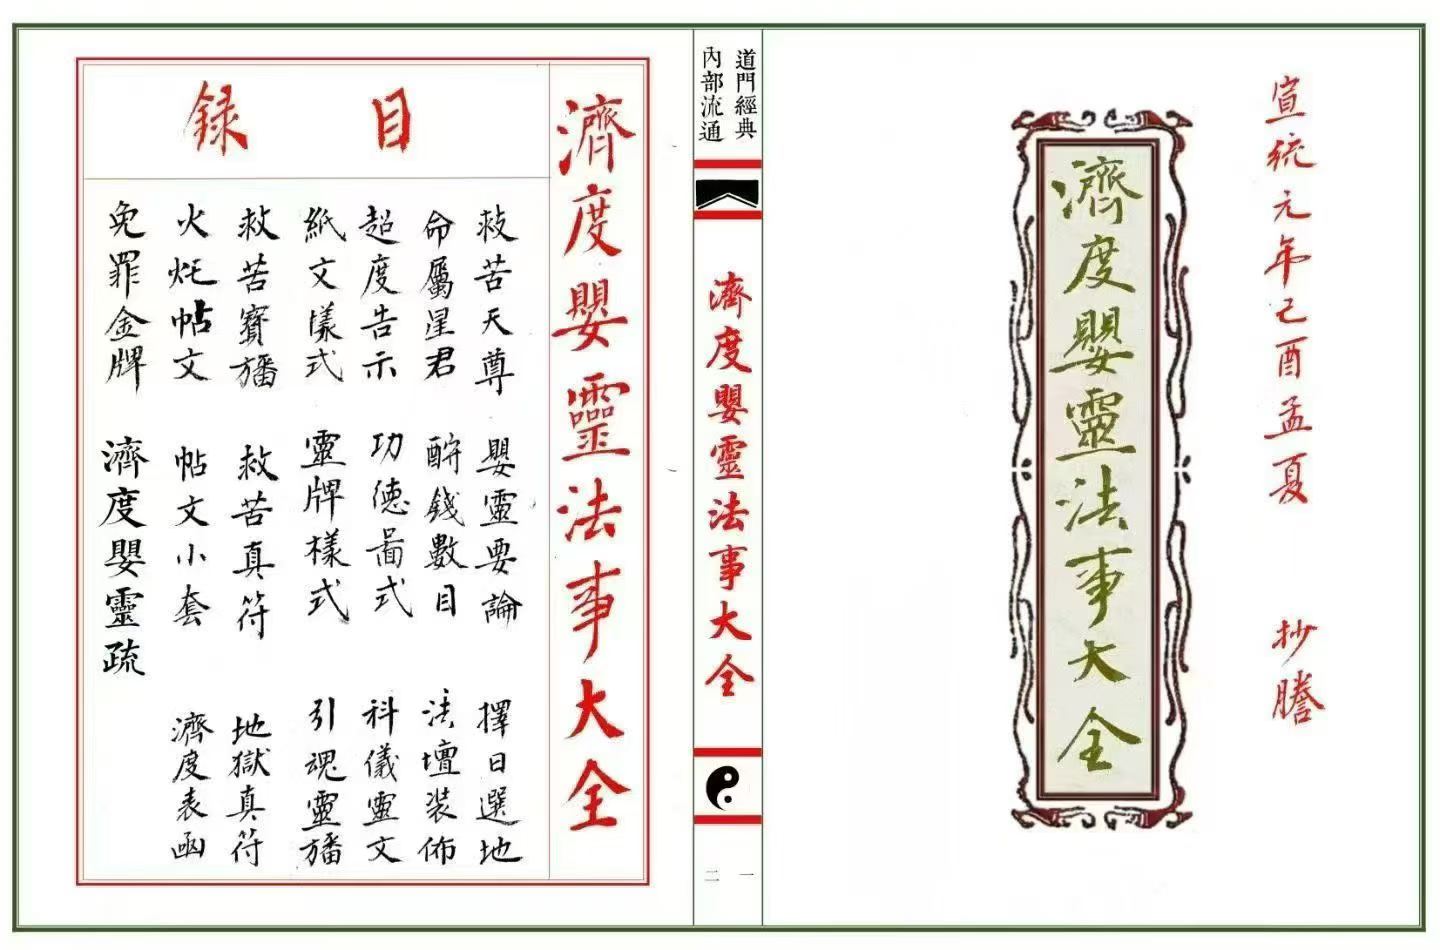 宣統元年己酉孟夏 抄謄
濟度嬰靈法事大全
道門經典
內部流通
濟度嬰靈法事大全
一
二
濟度嬰靈法事大全
目錄
救苦天尊 嬰靈要論 擇日選地
命屬星君 酧錢數目 法壇装佈
超度告示 功徳啚式 科儀靈文
紙文㨾式 靈牌樣式 引魂靈旛
救苦寳旛 救苦真符 地獄真符
火炬帖文 帖文小套 濟度表函
免罪金牌 濟度嬰靈疏